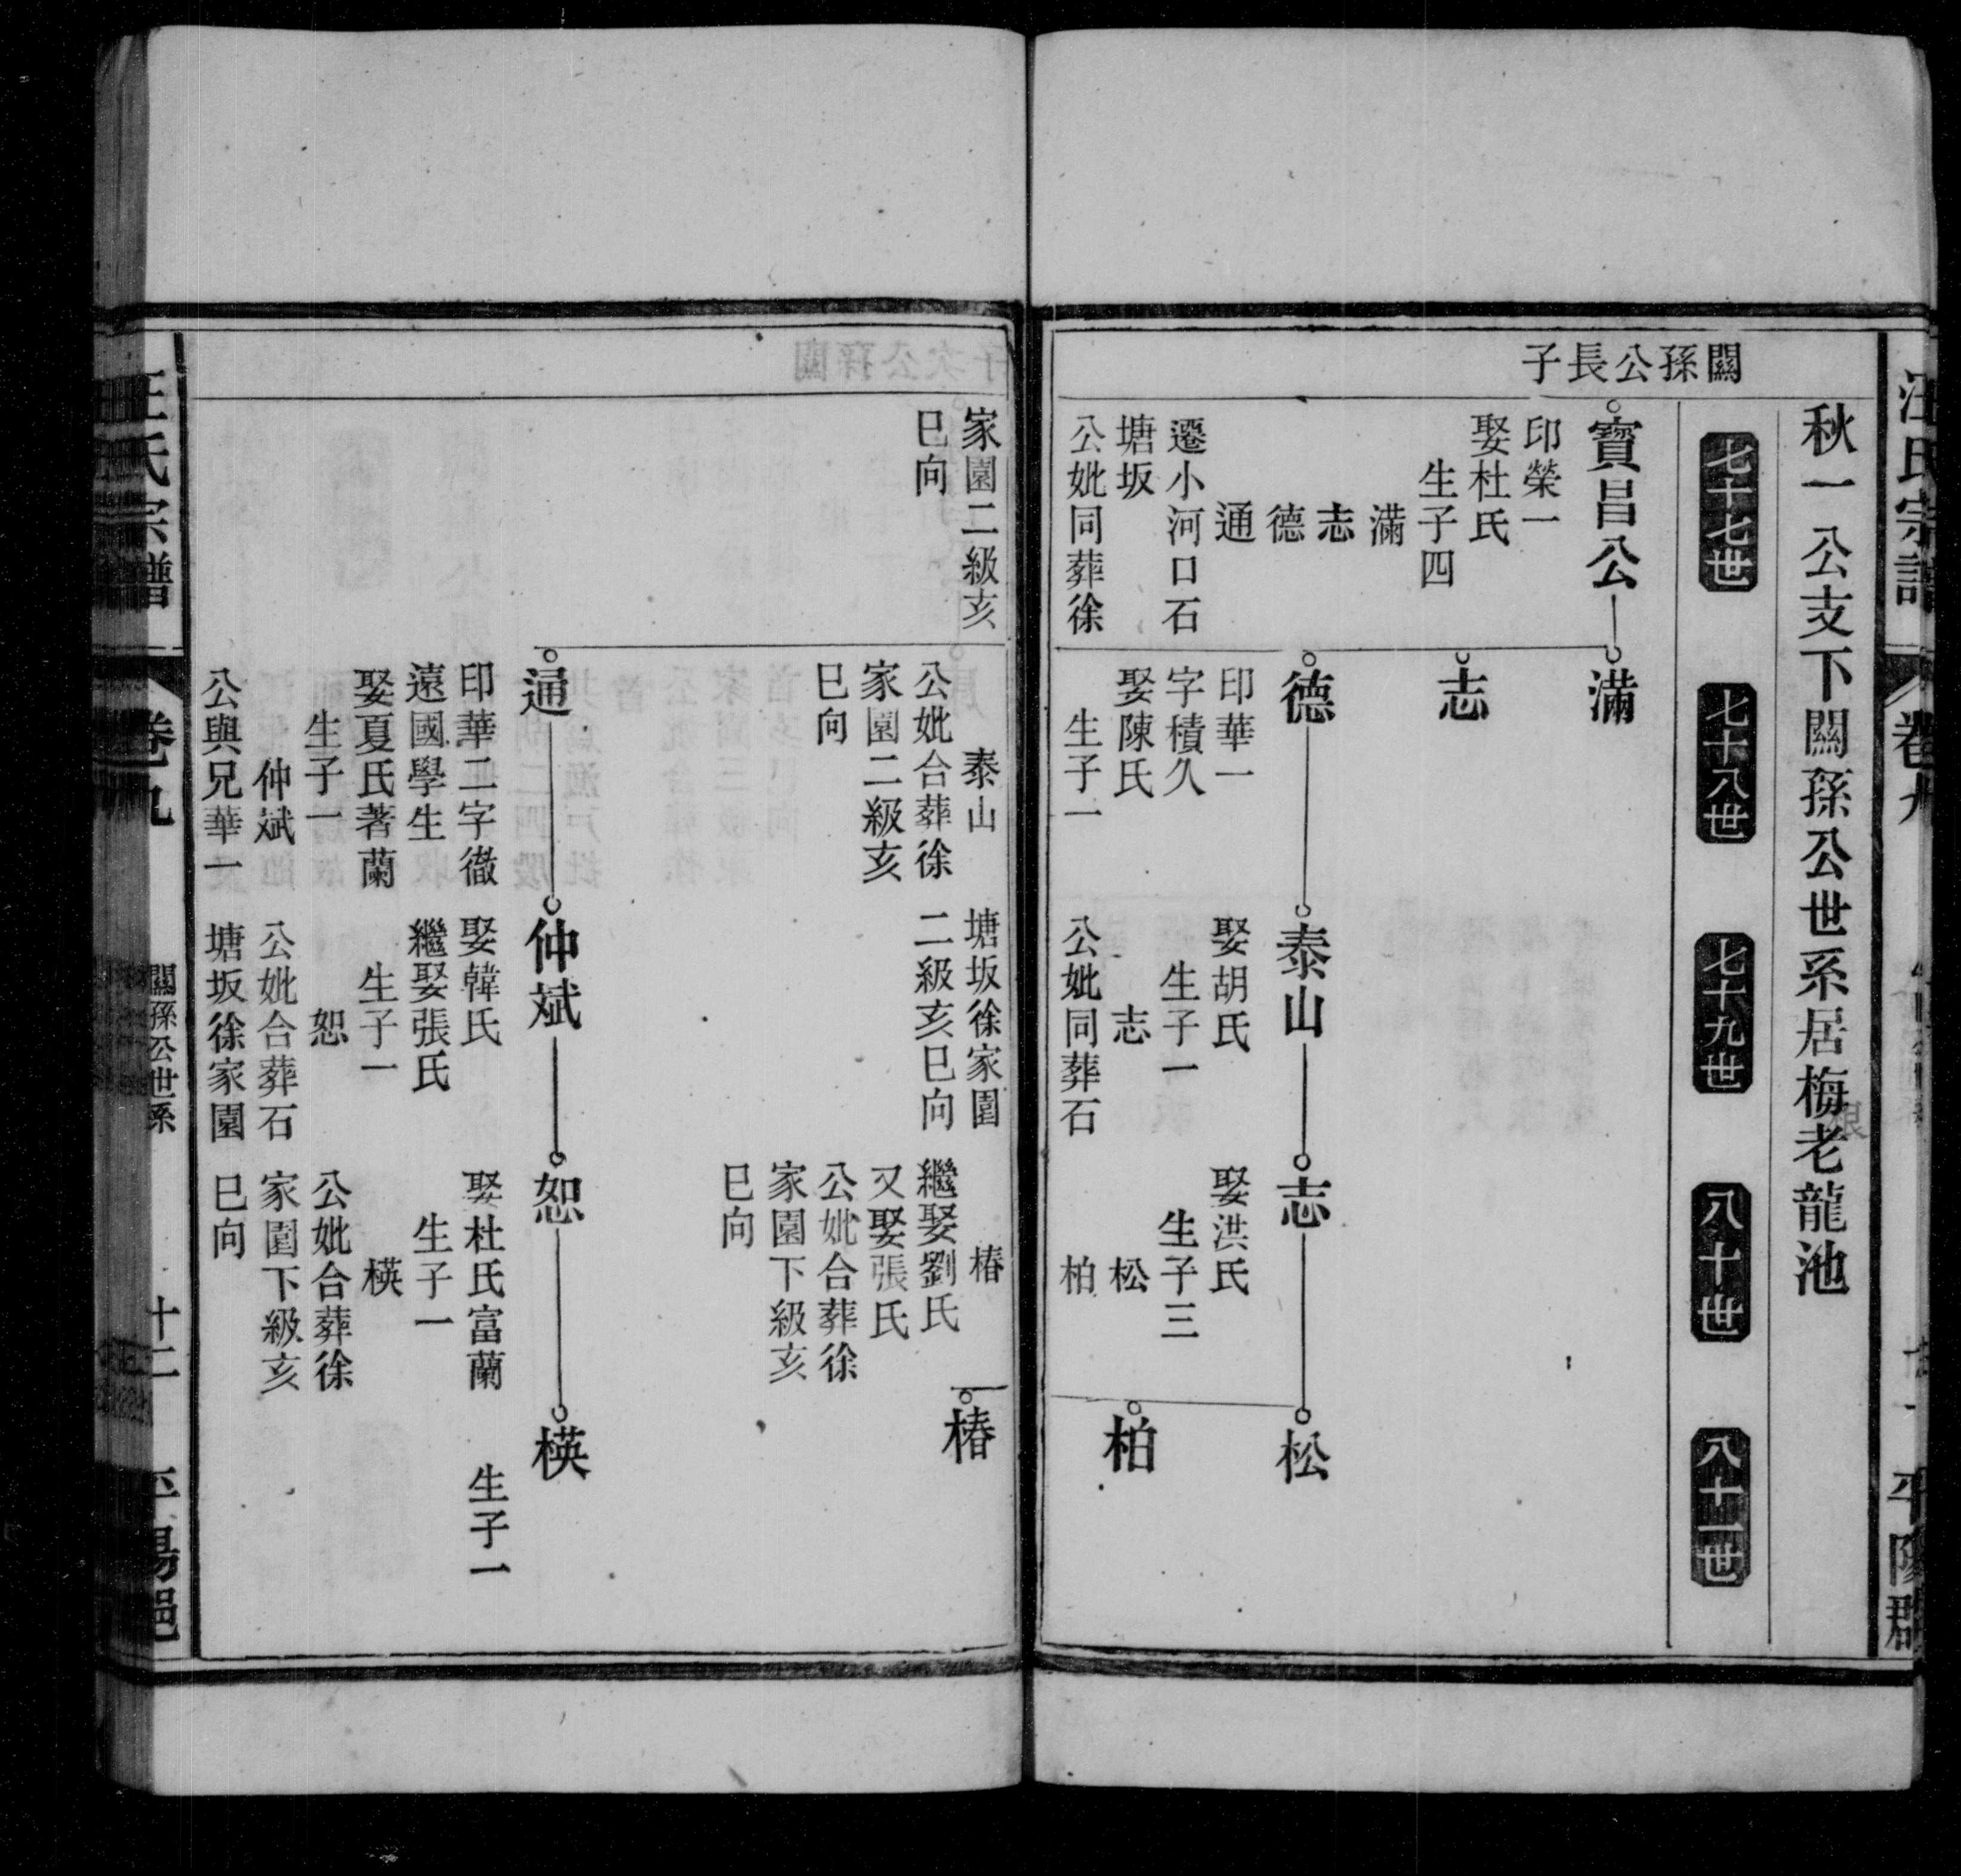 汪氏宗譜
卷九
平陽郡
秋一公支下闗孫公世系居梅老龍池
七十七世
七十八世
七十九世
八十世
八十一世
闗孫公長子
寶昌公
印榮一
娶杜氏
生子四
滿
志
德
通
遷小河口石
塘坂
公妣同葬徐
滿
志
德
印華一
字積久
娶陳氏
生子一
泰山
娶胡氏
生子一
志
公妣同葬石
志
娶洪氏
生子三
松
柏
松
柏
家園二級亥
巳向
泰山
公妣合葬徐
家園二級亥
巳向
塘坂徐家園
二級亥巳向
椿
繼娶劉氏
又娶張氏
公妣合葬徐
家園下級亥
巳向
椿
通
印華二字徹
遠國學生
娶夏氏著蘭
生子一
仲斌
公與兄華一
仲斌
娶韓氏
繼娶張氏
生子一
恕
公妣合葬石
塘坂徐家園
恕
娶杜氏富蘭
生子一
模
公妣合葬徐
家園下級亥
巳向
模
生子一
汪氏宗譜
卷九
闗孫公世系
十二
平陽邑